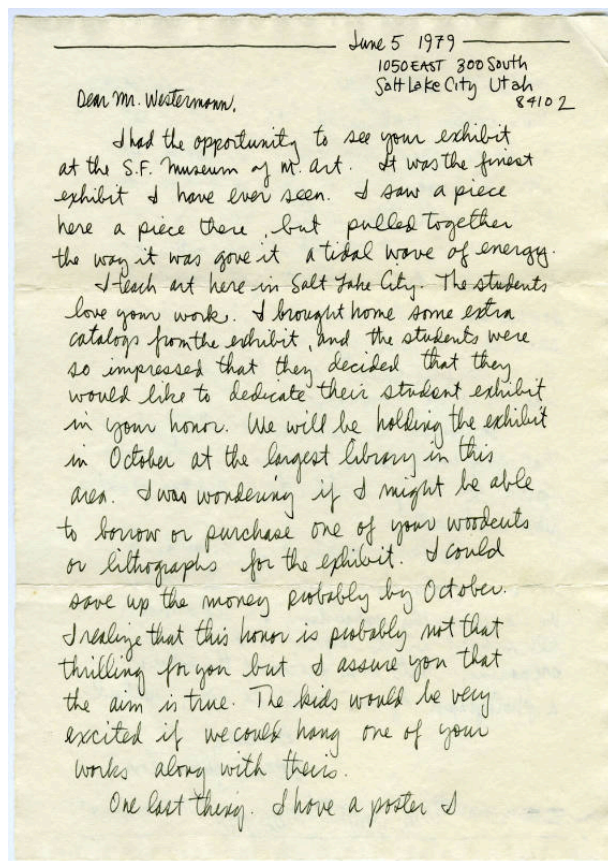 June 5 1979
1050 EAST 300 South
Salt Lake City Utah
84102
Dear Mr. Westermann,
I had the opportunity to see your exhibit
at the S.F. Museum of M. art. It was the finest
exhibit I have ever seen. I saw a piece
here a piece there, but pulled together
the way it was gave it a tidal wave of energy.
I teach art here in Salt Lake City. The students
love your work. I brought home some extra
catalogs from the exhibit, and the students were
so impressed that they decided that they
would like to dedicate their student exhibit
in your honor. We will be holding the exhibit
in October at the largest library in this
area. I was wondering if I might be able
to borrow or purchase one of your woodcuts
or lithographs for the exhibit. I could
save up the money probably by October.
I realize that this honor is probably not that
thrilling for you but I assure you that
the aim is true. The kids would be very
excited if we could hang one of your
works along with theirs.
One last thing. I have a poster I